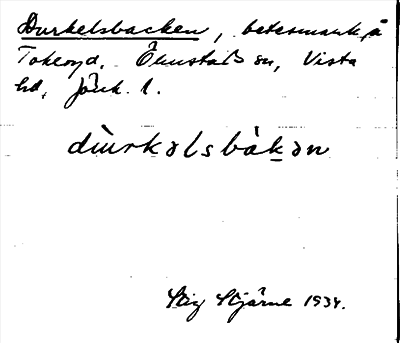 Durkelsbacken, betesmark, å
Tokeryd, Ölmstads sn, Vista
hd, Jönk. l.
dùrkəlsbàk̲ən
Stig Stjärne 1934.